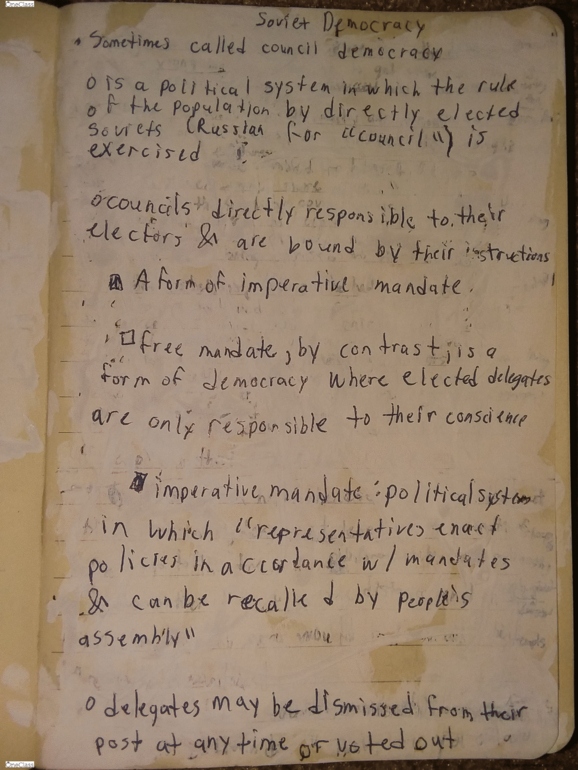 OneClass
Soviet Democracy
• Sometimes called council democracy
o is a political system in which the rule
o of the population by directly elected
soviets (Russian for "council") is
exercised
o councils directly responsible to their
electors & are bound by their instructions
A form of imperative mandate.
free mandate, by contrast, is a
form of democracy where elected delegates
are only responsible to their conscience
imperative mandate: political system
in which "representatives enact
policies in accordance w/ mandates
& can be recalled by people's
assembly"
o delegates may be dismissed from their
post at any time or voted out
OneClass